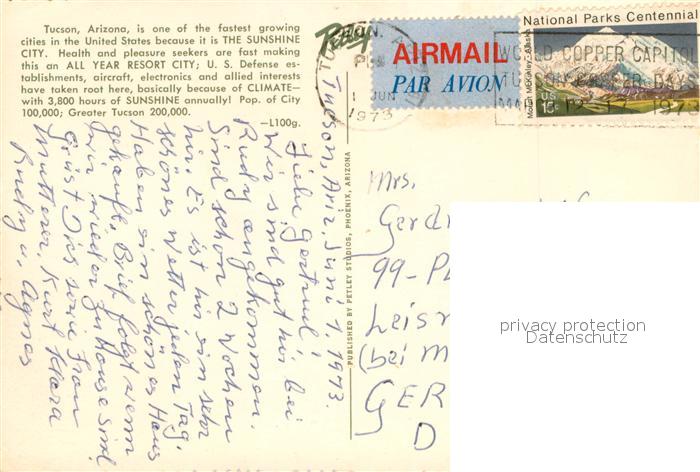 Tucson, Arizona, is one of the fastest growing
cities in the United States because it is THE SUNSHINE
CITY. Health and pleasure seekers are fast making
this an ALL YEAR RESORT CITY; U. S. Defense es-
tablishments, aircraft, electronics and allied interests
have taken root here, basically because of CLIMATE—
with 3,800 hours of SUNSHINE annually! Pop. of City
100,000; Greater Tucson 200,000.
—L100g.
Petley
Tucson, Ariz. Juni 1. 1973.
Liebe Gertrud!
Wir sind gut hir bei
Rudy angekommen.
Sind schon 2 Wochen
hir. Es ist hir ein sehr
schönes Wetter jeden Tag.
Haben ein schönes Haus
gekauft. Brief folgt wenn
wir wieder zu Hause sind
Grüst Dies sowie Frau
Mutterer, Kurt Klara
Rudy u. Agnes
PUBLISHED BY PETLEY STUDIOS, PHOENIX, ARIZONA
AIRMAIL
PAR AVION
PM
1 JUN
1973
National Parks Centennial
Mount McKinley Alaska
U.S.
15c
WORLD COPPER CAPITOL
TUCSON
DAY
Mrs.
99-
(bei
GER
D
privacy protection
Datenschutz